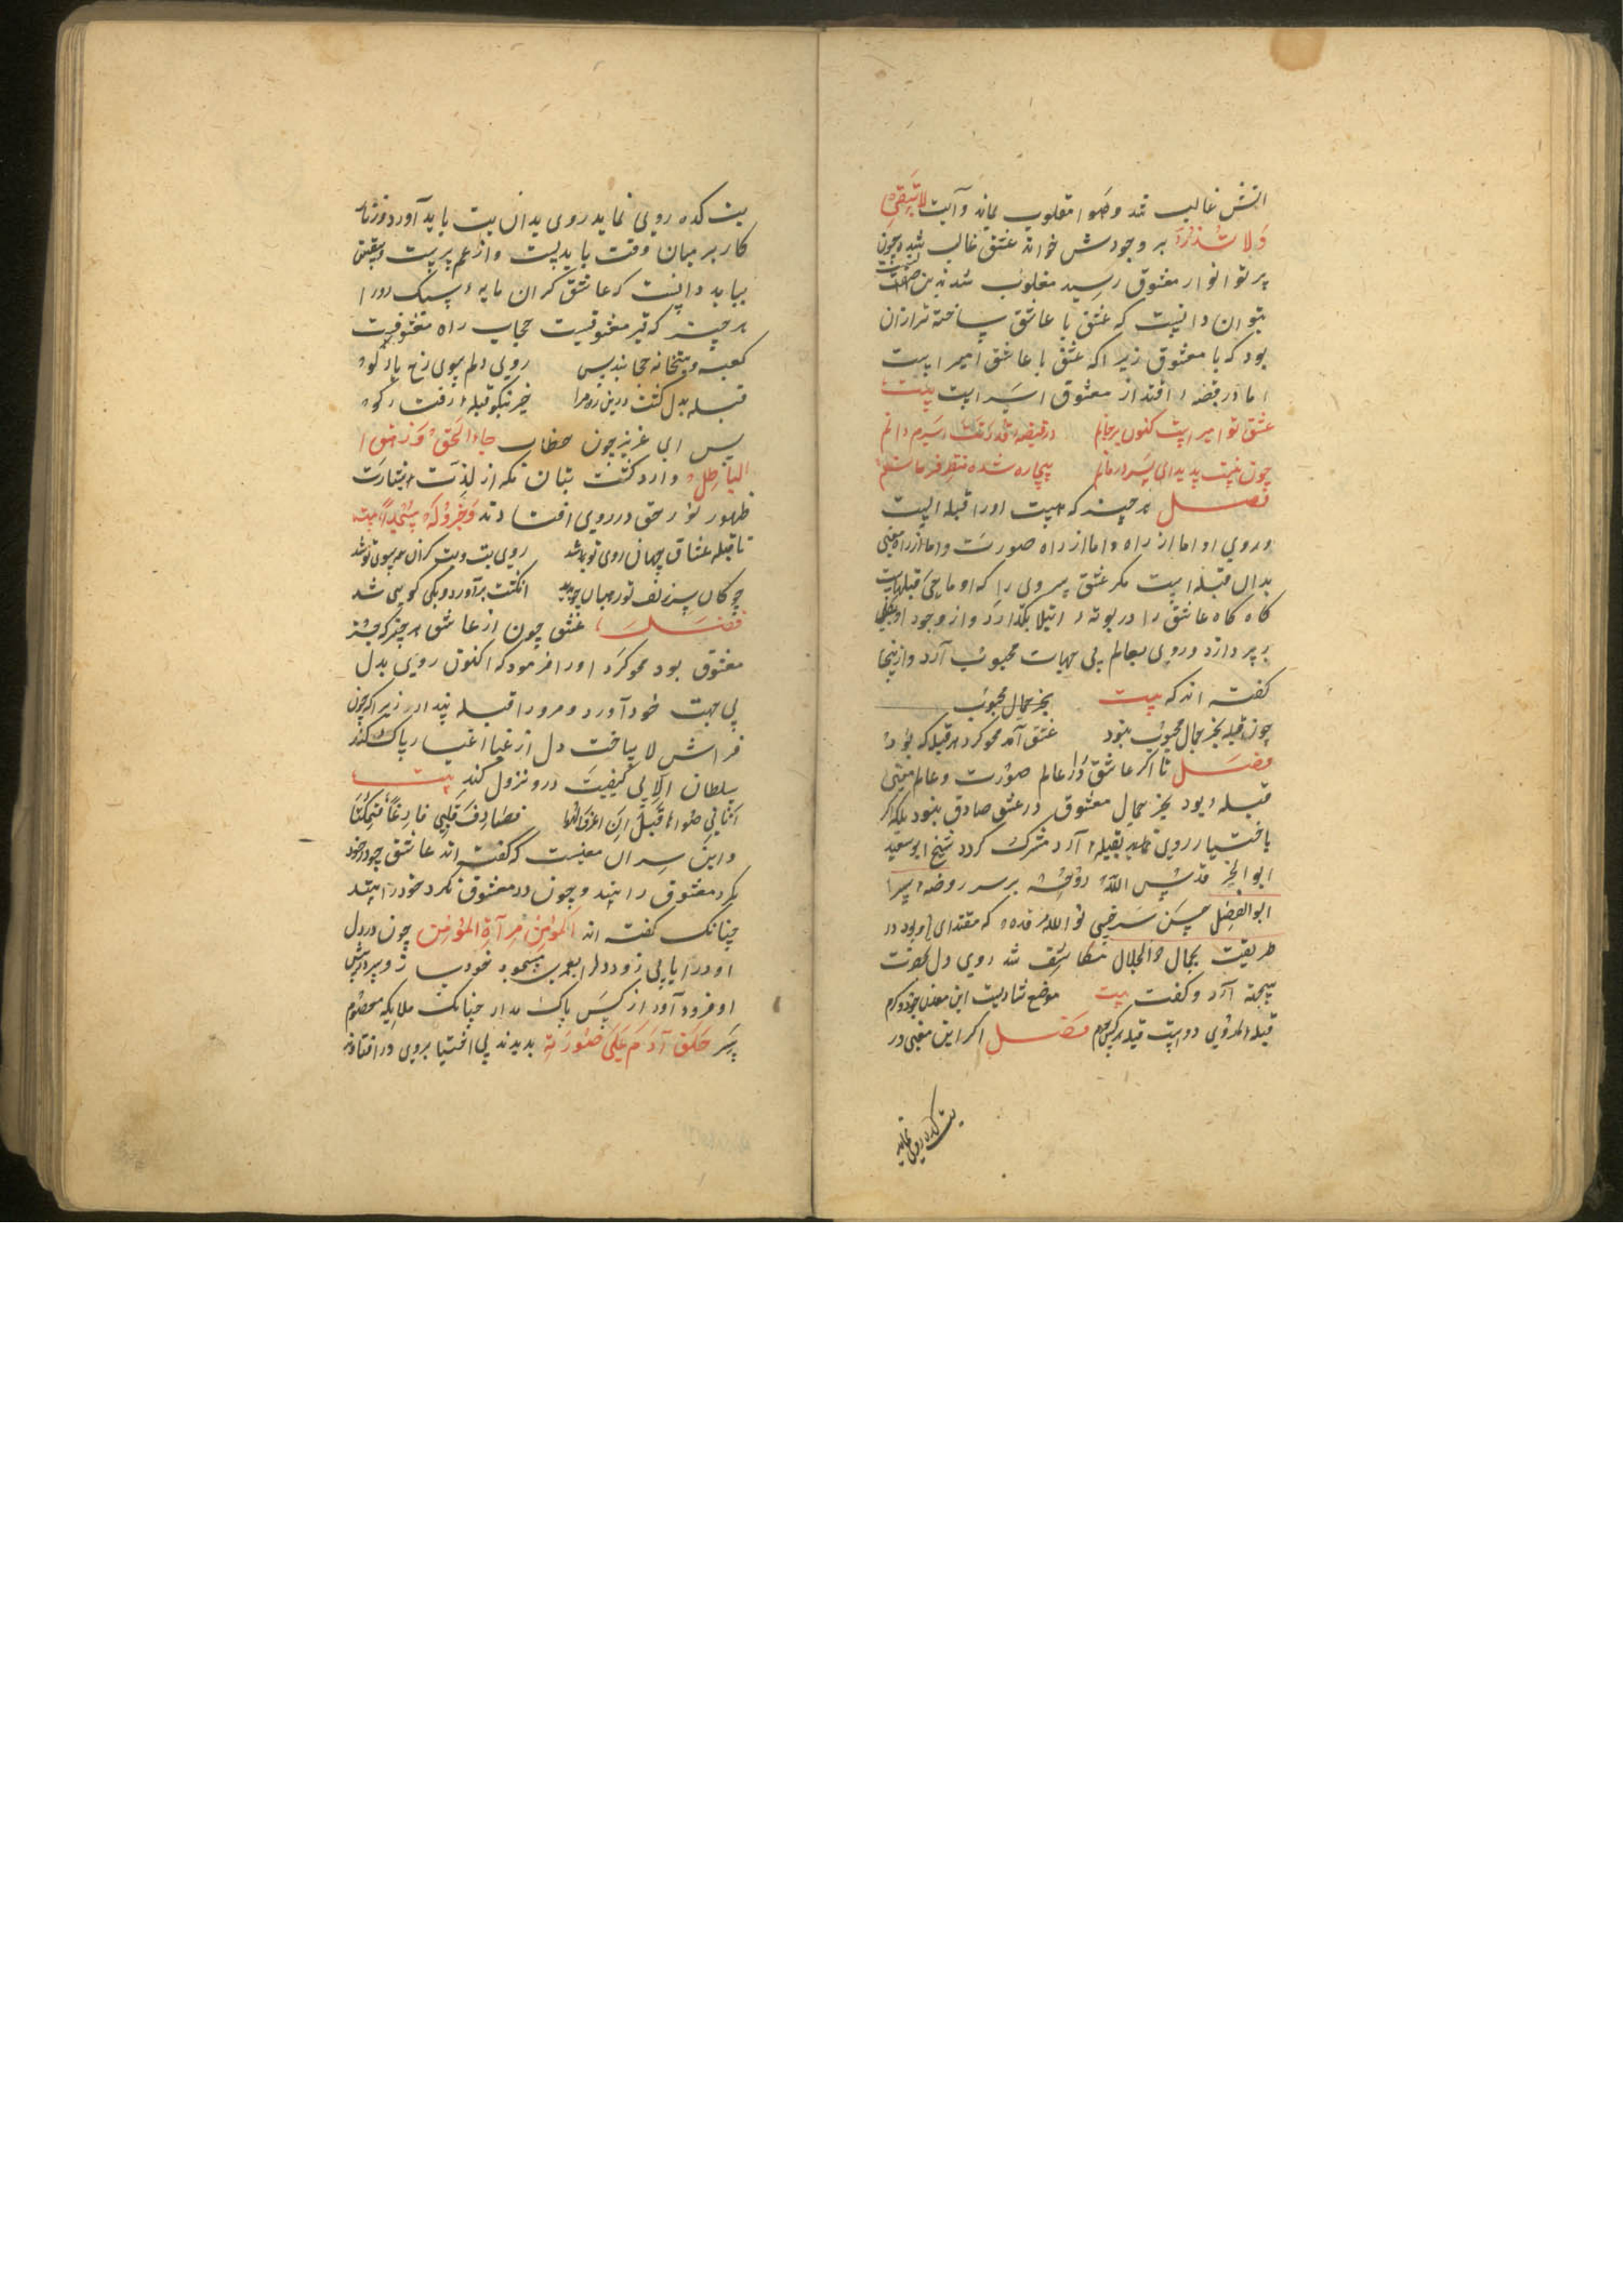 آتش غالب شد و هوا مغلوب بماند و آیت لا تبقی
ولا تذر بر وجودش خواند عشق غالب شد و چون
پرتو انوار معشوق رسید مغلوب شد بدین صفت
بتوان دانست که عشق با عاشق ساخته تر ازان
بود که با معشوق زیرا که عشق با عاشق امیر است
اما در قبضه اقتدار معشوق اسیر است بیت
عشق تو امیر است کنون بر جانم در قبضه قدرتت اسیرم دانم
چون نیست پدید ای پسر درمانم بیچاره شده منتظر فرمانم
فصل هر چیز که هست او را قبله ایست
و روی او اما از راه و اما از راه صورت و اما از راه معنی
بدان قبله است مگر عشق بی روی را که او ماحی قبلهاست
گاه گاه عاشق را در بوته ابتلا بگدازد و از وجود او بکلی
بپردازد و روی بعالم بی جهات محبوب آرد و ازینجا
گفته اند که بیت بجز جمال محبوب
چون قبله بجز جمال محبوب نبود عشق آمد محو کرد هر قبله که بود
فصل تا اگر عاشق را در عالم صورت و عالم معنی
قبله بود بجز جمال معشوق در عشق صادق نبود بلکه اگر
باختیار روی بقبله آرد مشرک گردد شیخ ابوسعید
ابوالخیر قدس الله روحه بر سر روضه پیر
ابوالفضل حسن سرخسی نور الله مرقده که مقتدای او بود در
طریقت بجمال ذوالجلال مکاشف شد روی دل بحضرت
آرد و گفت بیت موضع شادیست این معدن جود و کرم
قبله ما روی دوست قبله هر کس حرم فصل اگر این معنی در
بت کده روی نماید
بت کده روی نماید روی بدان بت باید آورد و زنار
کار بر میان وقت باید بست و از غم پرست و بیقین
بباید دانست که عاشق گران مایه و سبک رو را
هر چیز که غیر معشوقست حجاب راه معشوقست
کعبه و بتخانه حجابند بس روی دلم سوی رخ یار کو
قبله بدل گشت درین ره مرا خیز نکو قبله رفت کو
پس ای عزیز چون خطاب جاء الحق و زهق
الباطل وارد گشت بتان مکه از لذت بشارت
ظهور نور حق در روی افتادند و خروا له سجدا بیت
تا قبله عشاق جهان روی تو باشد روی بت و بت گران هم سوی تو شد
چوگان سر زلف تو در میان چو بدید انگشت برآورد و یکی گوی شد
فصل عشق چون از عاشق هر چیز که جز
معشوق بود محو کرد او را فرمود که اکنون روی بدل
بی جهت خود آورد و مرو را قبله پندار زیرا که چون
فراش لا ساخت دل از غبار اغیار پاک کند
سلطان الا بی کیفیت درو نزول کند بیت
اتانی هواها قبل ان اعرف الهوا فصادف قلبی فارغا فتمکنا
و این سر آن معنیست که گفته اند عاشق چو در خود
نگرد معشوق را بیند و چون در معشوق نگرد خود را بیند
چنانک گفته اند المؤمن مرآة المؤمن چون در دل
او در آیی زود دل را سجود خود ساز و سر در پیش
او فرود آور از کس باک مدار چنانک ملایکه معصوم
سر خلق آدم علی صورته بدیدند بی اختیار بروی در افتادند